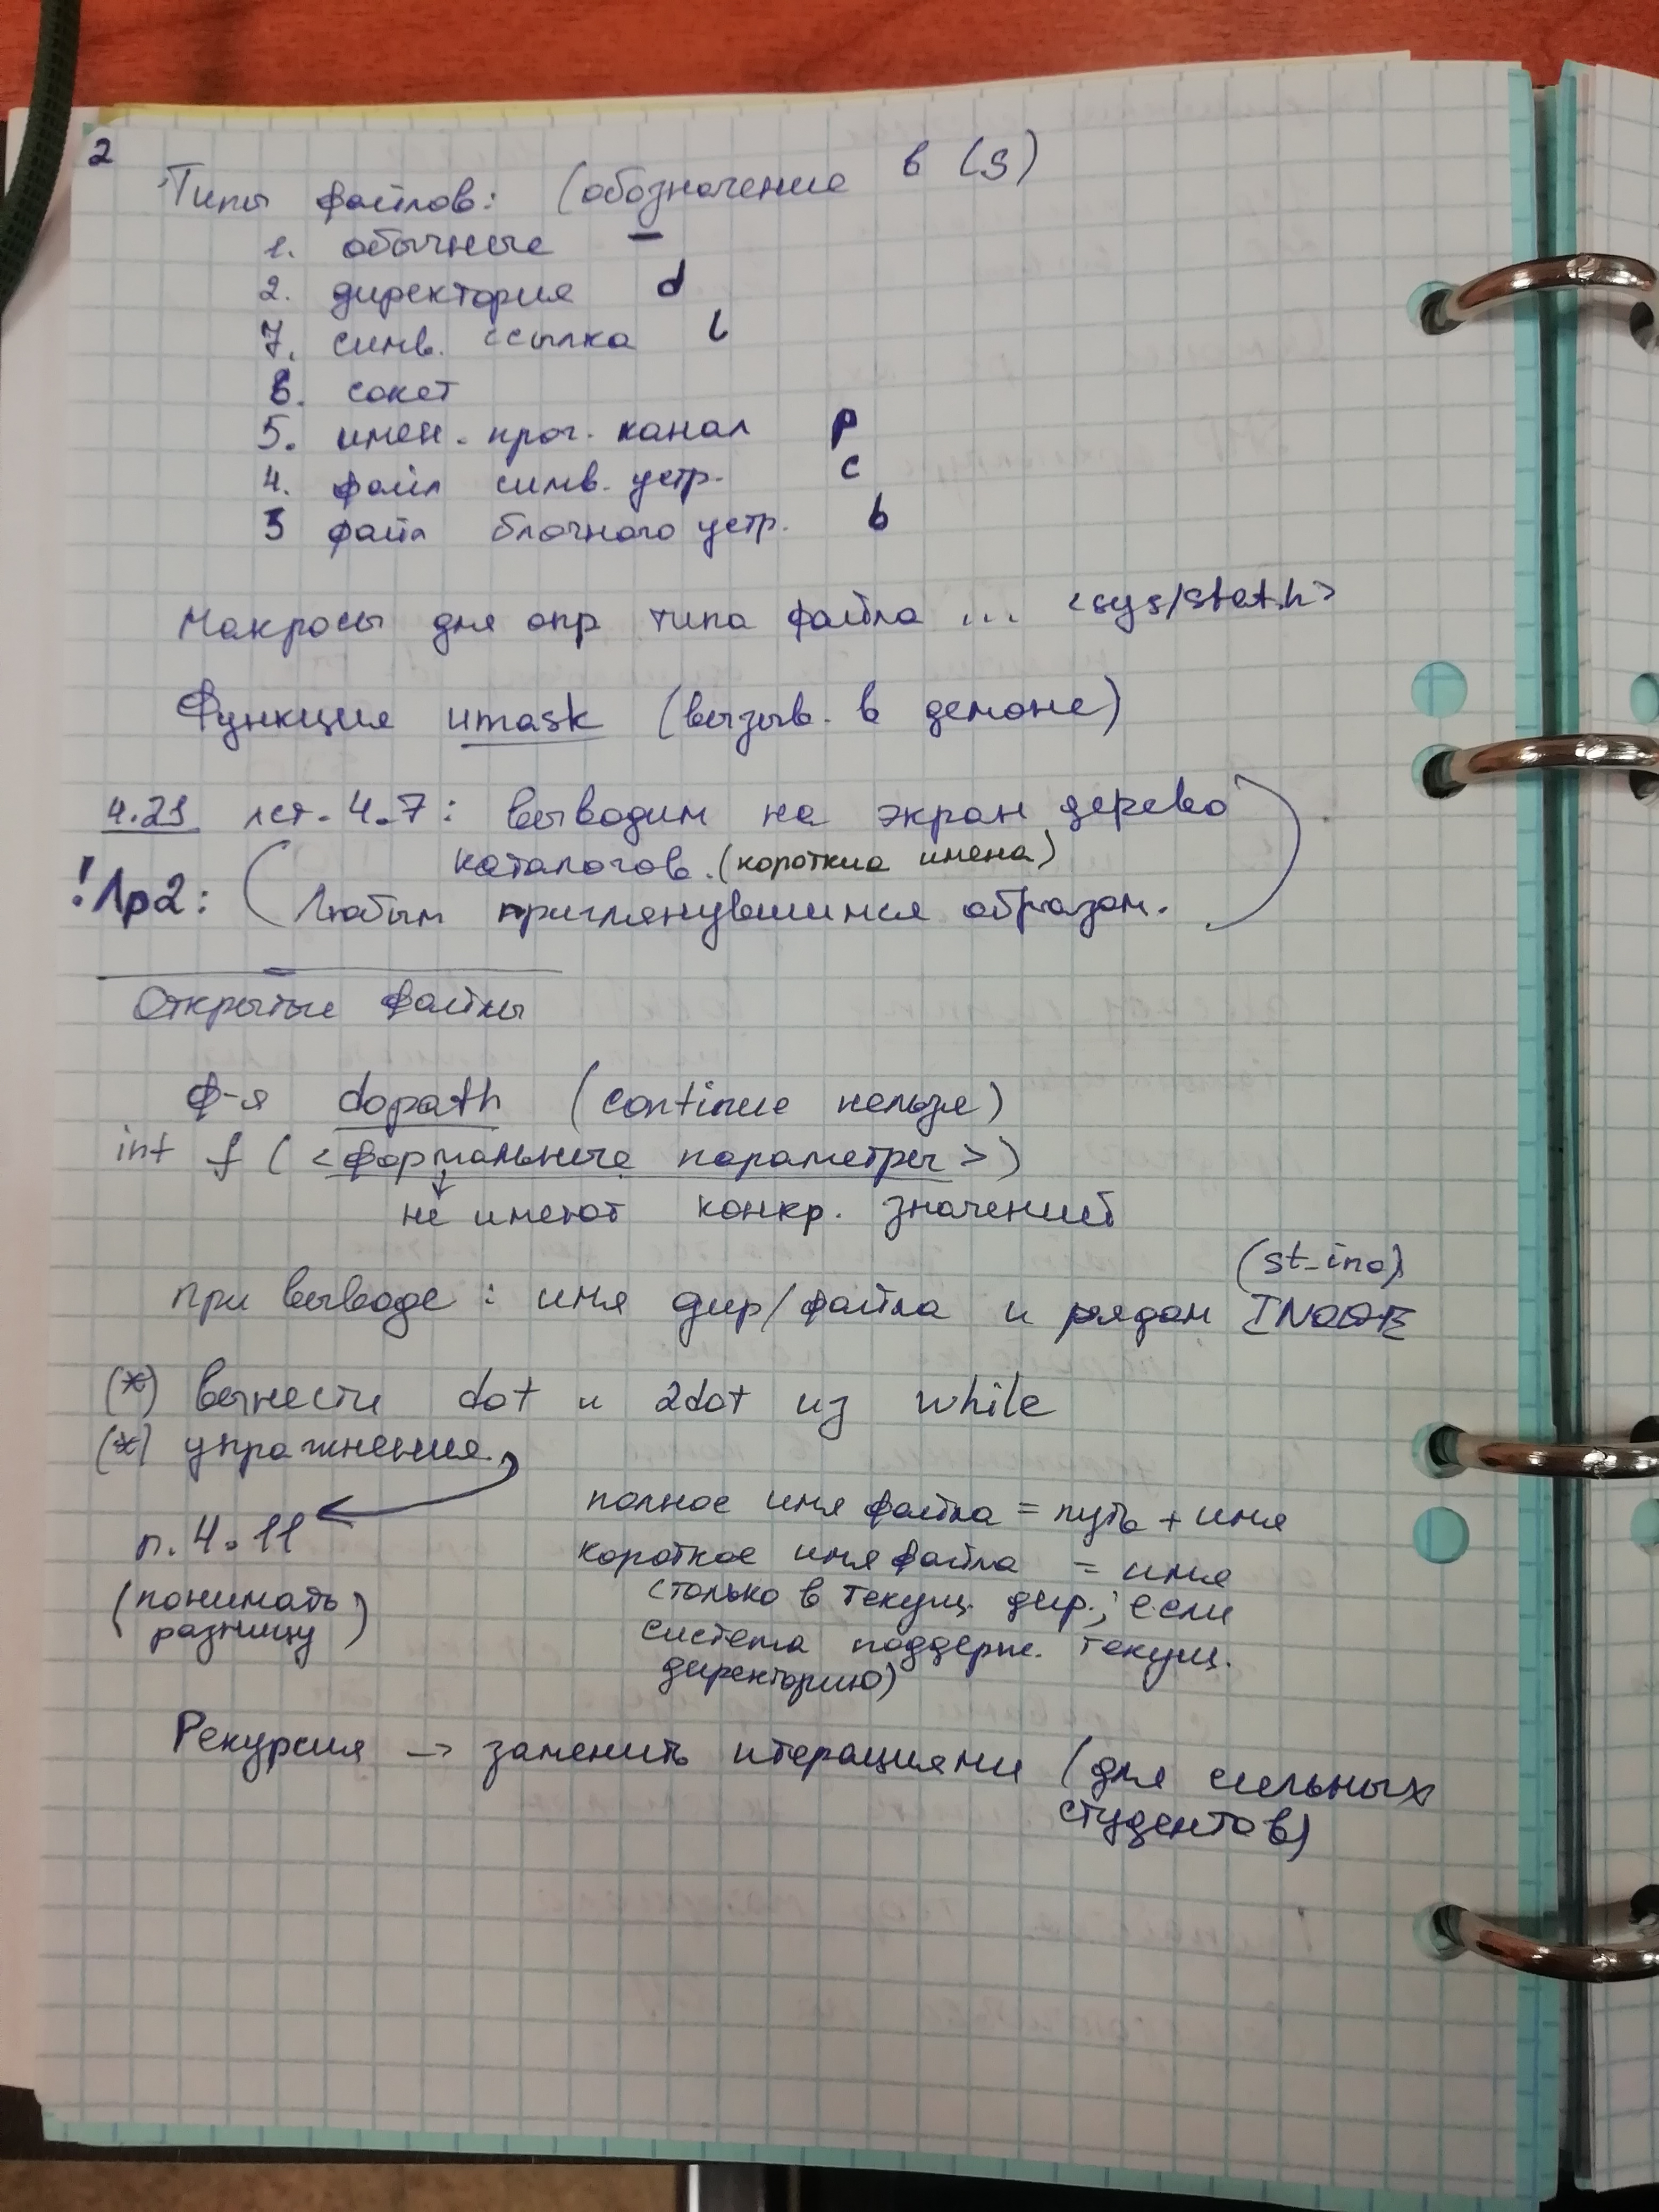 2
Типы файлов: (обозначение в (S)
1. обычные –
2. директория d
7. симв. ссылка l
6. сокет
5. имен. прог. канал p
4. файл симв. устр. c
3 файл блочного устр. b
Макросы для опр типа файла ... <sys/stat.h>
Функция umask (вызыв. в демоне)
4.21 лст. 4.7: выводим на экран дерево
каталогов. (короткие имена)
! Лр2: (Любым приглянувшимся образом.)
Открытые файлы
Ф-я dopath (continue нельзя)
int f (<формальные параметры>)
не имеют конкр. значений
(st_ino)
при выводе: имя дир/файла и рядом INODE
(*) вынести dot и 2dot из while
(*) упражнения.
п. 4.11
(понимать
разницу)
полное имя файла = путь + имя
короткое имя файла = имя
(только в текущ. дир.; если
система поддерж. текущ.
директорию)
Рекурсия -> заменить итерациями (для сильных
студентов)